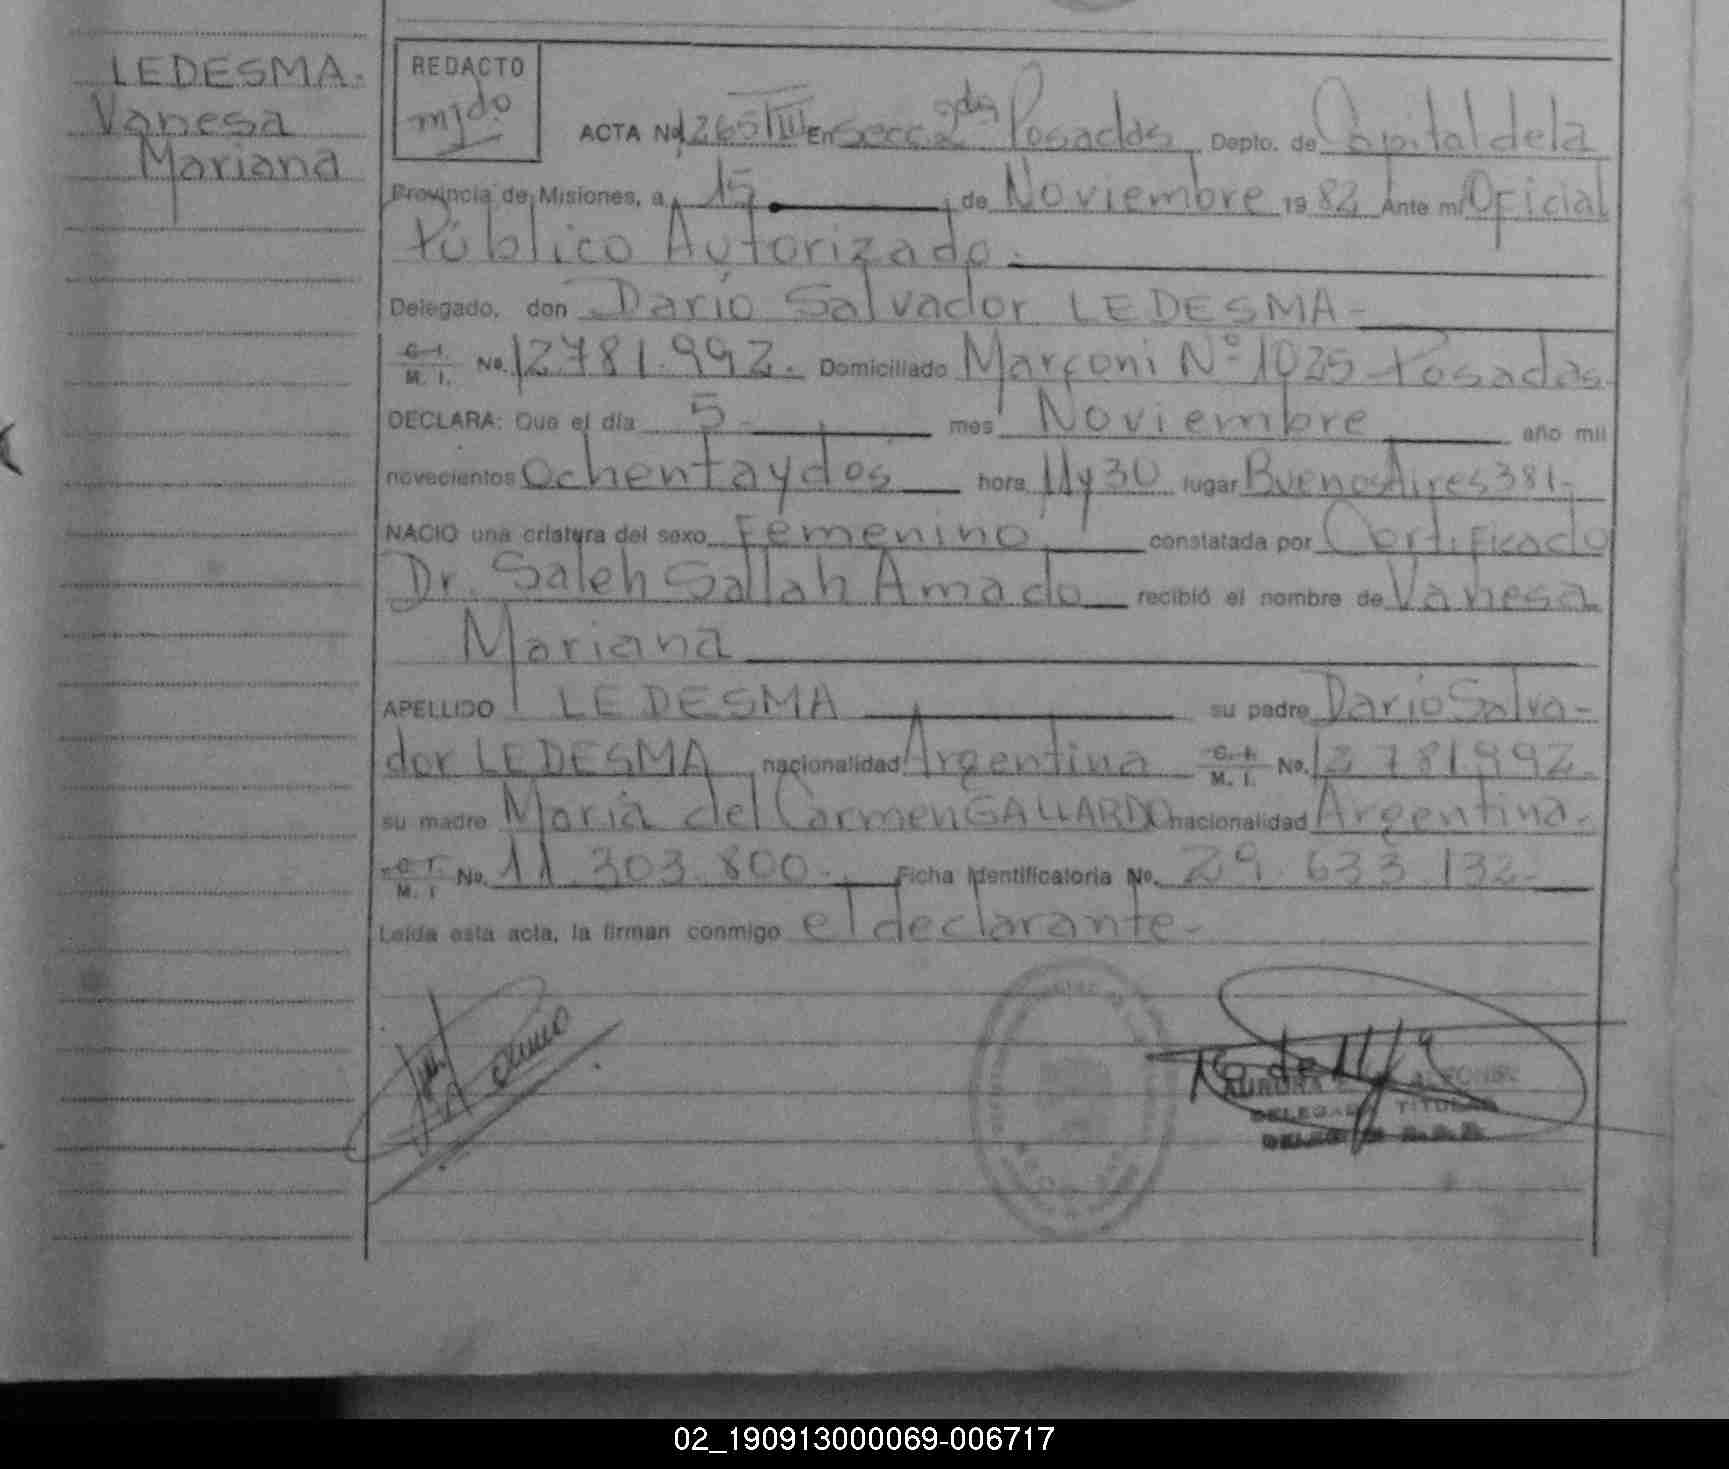 LEDESMA.
Vanesa
Mariana
REDACTO
mjdo
ACTA No 1265 III En Secc. 2da Posadas, Depto. de Capital de la
Provincia de Misiones, a 15 de Noviembre 1982 Ante mi Oficial
Público Autorizado.
Delegado, don Dario Salvador LEDESMA-
C. I. M. I. No. 12.781.992. Domiciliado Marconi Nº 1025-Posadas.
DECLARA: Que el día 5- mes Noviembre año mil
novecientos ochenta y dos hora 11 y 30 lugar Buenos Aires 381-
NACIO una criatura del sexo Femenino constatada por Certificado
Dr. Saleh Sallah Amado recibió el nombre de Vanesa
Mariana
APELLIDO LEDESMA su padre Dario Salva-
dor LEDESMA nacionalidad Argentina C. I. M. I. No. 12.781.992.
su madre Maria del Carmen GALLARDO nacionalidad Argentina.
C. I. M. I. No. 11.303.800. Ficha Identificatoria No. 29.633.132-
Leída esta acta, la firman conmigo el declarante-
AURORA
DELEGADA TITULAR
02_190913000069-006717